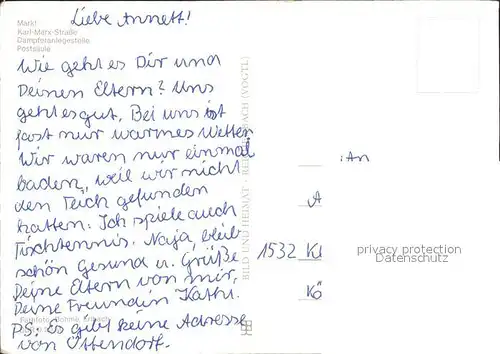 Liebe Annett!
Markt
Karl-Marx-Straße
Dampferanlegestelle
Postsäule
Wie geht es Dir und
Deinen Eltern? Uns
geht es gut. Bei uns ist
fast nur warmes Wetter.
Wir waren nur einmal
baden, weil wir nicht
den Teich gefunden
hatten. Ich spiele auch
Tischtennis. Naja, bleib
schön Gesund u. Grüße
Deine Eltern von mir,
Deine Freundin Kathr.
PS: Es gibt keine Adresse
von Ottendorf.
BILD UND HEIMAT · REICHENBACH (VOGTL)
:An
A
1532 Kl
Kö
privacy protection
Datenschutz